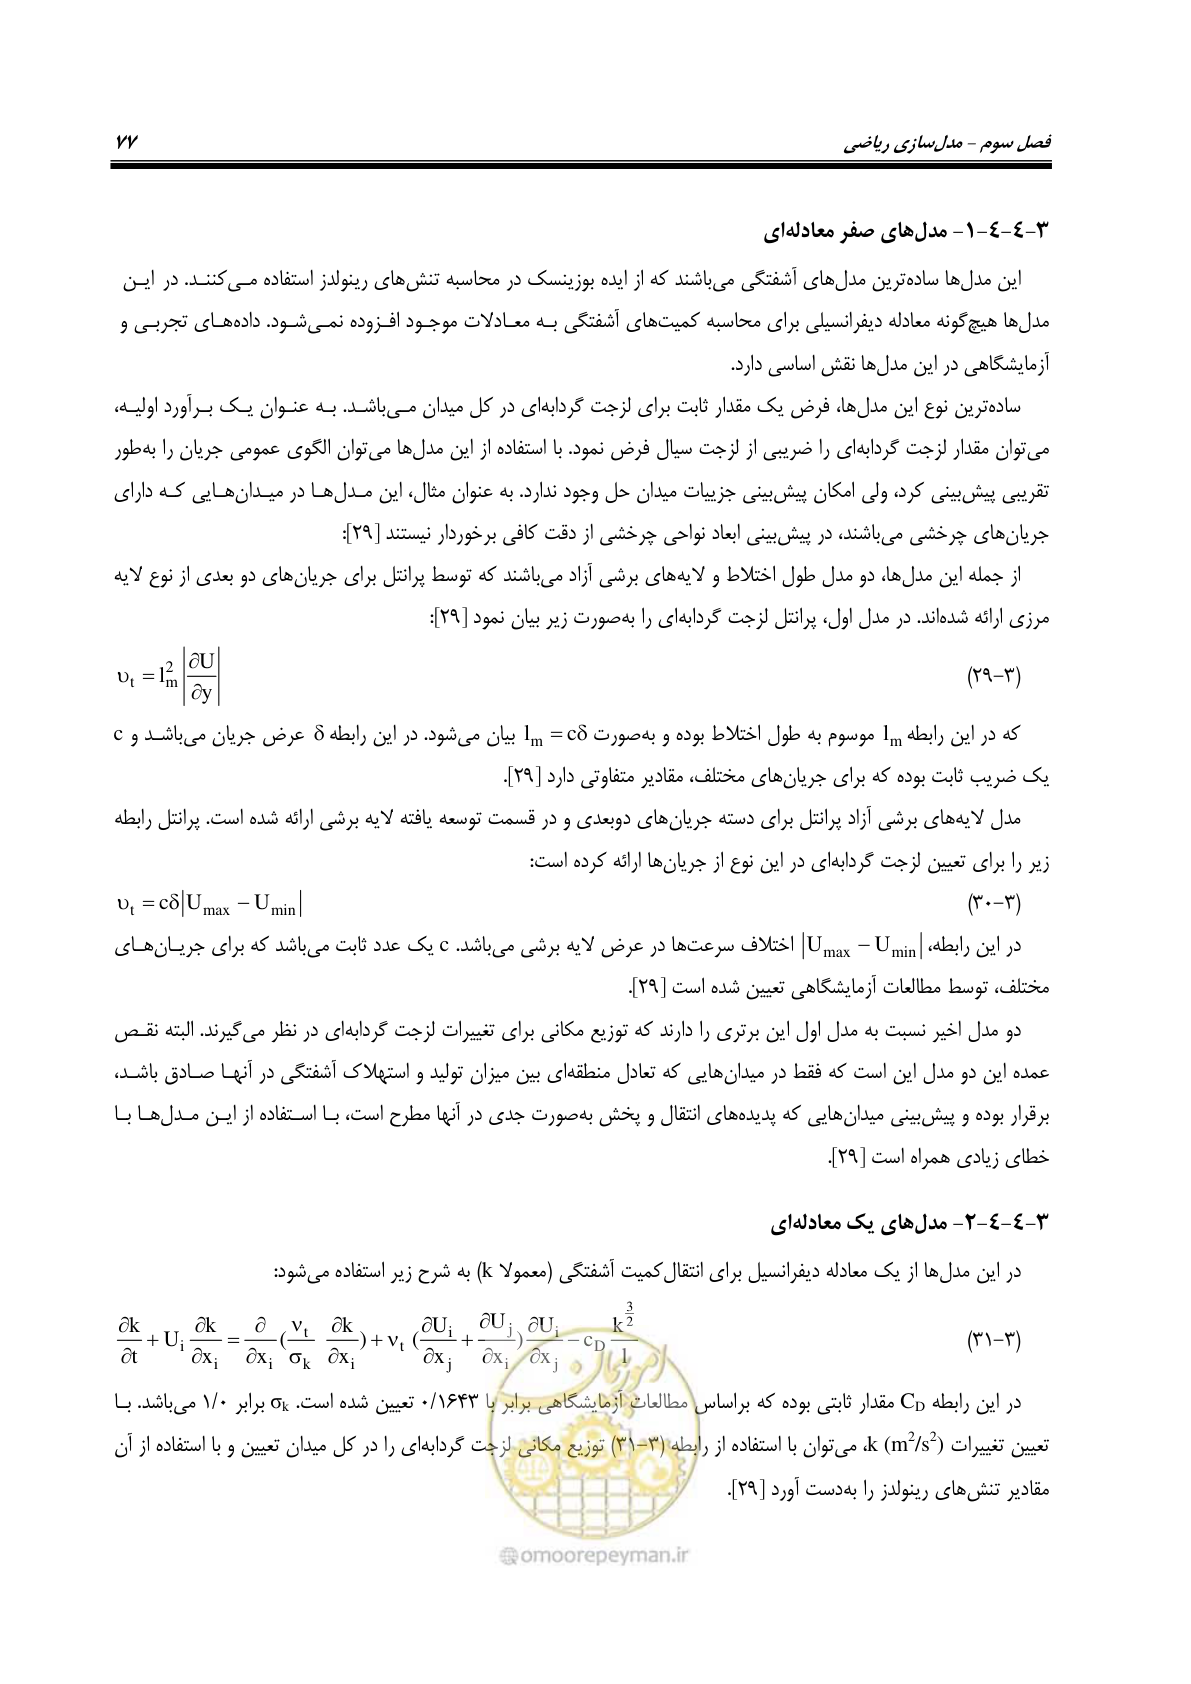 فصل سوم – مدل‌سازی ریاضی ۷۷
۳-۴-۴-۱- مدل‌های صفر معادله‌ای
این مدل‌ها ساده‌ترین مدل‌های آشفتگی می‌باشند که از ایده بوزینسک در محاسبه تنش‌های رینولدز استفاده مـی‌کننـد. در ایـن
مدل‌ها هیچ‌گونه معادله دیفرانسیلی برای محاسبه کمیت‌های آشفتگی بـه معـادلات موجـود افـزوده نمـی‌شـود. داده‌هـای تجربـی و
آزمایشگاهی در این مدل‌ها نقش اساسی دارد.
ساده‌ترین نوع این مدل‌ها، فرض یک مقدار ثابت برای لزجت گردابه‌ای در کل میدان مـی‌باشـد. بـه عنـوان یـک بـرآورد اولیـه،
می‌توان مقدار لزجت گردابه‌ای را ضریبی از لزجت سیال فرض نمود. با استفاده از این مدل‌ها می‌توان الگوی عمومی جریان را به‌طور
تقریبی پیش‌بینی کرد، ولی امکان پیش‌بینی جزییات میدان حل وجود ندارد. به عنوان مثال، این مـدل‌هـا در میـدان‌هـایی کـه دارای
جریان‌های چرخشی می‌باشند، در پیش‌بینی ابعاد نواحی چرخشی از دقت کافی برخوردار نیستند [۲۹]:
از جمله این مدل‌ها، دو مدل طول اختلاط و لایه‌های برشی آزاد می‌باشند که توسط پرانتل برای جریان‌های دو بعدی از نوع لایه
مرزی ارائه شده‌اند. در مدل اول، پرانتل لزجت گردابه‌ای را به‌صورت زیر بیان نمود [۲۹]:
(۳-۲۹) υ_t = l_m^2 |∂U/∂y|
که در این رابطه l_m موسوم به طول اختلاط بوده و به‌صورت l_m = cδ بیان می‌شود. در این رابطه δ عرض جریان می‌باشـد و c
یک ضریب ثابت بوده که برای جریان‌های مختلف، مقادیر متفاوتی دارد [۲۹].
مدل لایه‌های برشی آزاد پرانتل برای دسته جریان‌های دوبعدی و در قسمت توسعه یافته لایه برشی ارائه شده است. پرانتل رابطه
زیر را برای تعیین لزجت گردابه‌ای در این نوع از جریان‌ها ارائه کرده است:
(۳-۳۰) υ_t = cδ|U_max − U_min|
در این رابطه، |U_max − U_min| اختلاف سرعت‌ها در عرض لایه برشی می‌باشد. c یک عدد ثابت می‌باشد که برای جریـان‌هـای
مختلف، توسط مطالعات آزمایشگاهی تعیین شده است [۲۹].
دو مدل اخیر نسبت به مدل اول این برتری را دارند که توزیع مکانی برای تغییرات لزجت گردابه‌ای در نظر می‌گیرند. البته نقـص
عمده این دو مدل این است که فقط در میدان‌هایی که تعادل منطقه‌ای بین میزان تولید و استهلاک آشفتگی در آنهـا صـادق باشـد،
برقرار بوده و پیش‌بینی میدان‌هایی که پدیده‌های انتقال و پخش به‌صورت جدی در آنها مطرح است، بـا اسـتفاده از ایـن مـدل‌هـا بـا
خطای زیادی همراه است [۲۹].
۳-۴-۴-۲- مدل‌های یک معادله‌ای
در این مدل‌ها از یک معادله دیفرانسیل برای انتقال کمیت آشفتگی (معمولا k) به شرح زیر استفاده می‌شود:
(۳-۳۱) ∂k/∂t + U_i ∂k/∂x_i = ∂/∂x_i (ν_t/σ_k ∂k/∂x_i) + ν_t (∂U_i/∂x_j + ∂U_j/∂x_i) ∂U_i/∂x_j − c_D k^(3/2)/l
در این رابطه C_D مقدار ثابتی بوده که براساس مطالعات آزمایشگاهی برابر با ۰/۱۶۴۳ تعیین شده است. σ_k برابر ۱/۰ می‌باشد. بـا
تعیین تغییرات k (m²/s²)، می‌توان با استفاده از رابطه (۳-۳۱) توزیع مکانی لزجت گردابه‌ای را در کل میدان تعیین و با استفاده از آن
مقادیر تنش‌های رینولدز را به‌دست آورد [۲۹].
امور پیمان
@omoorepeyman.ir